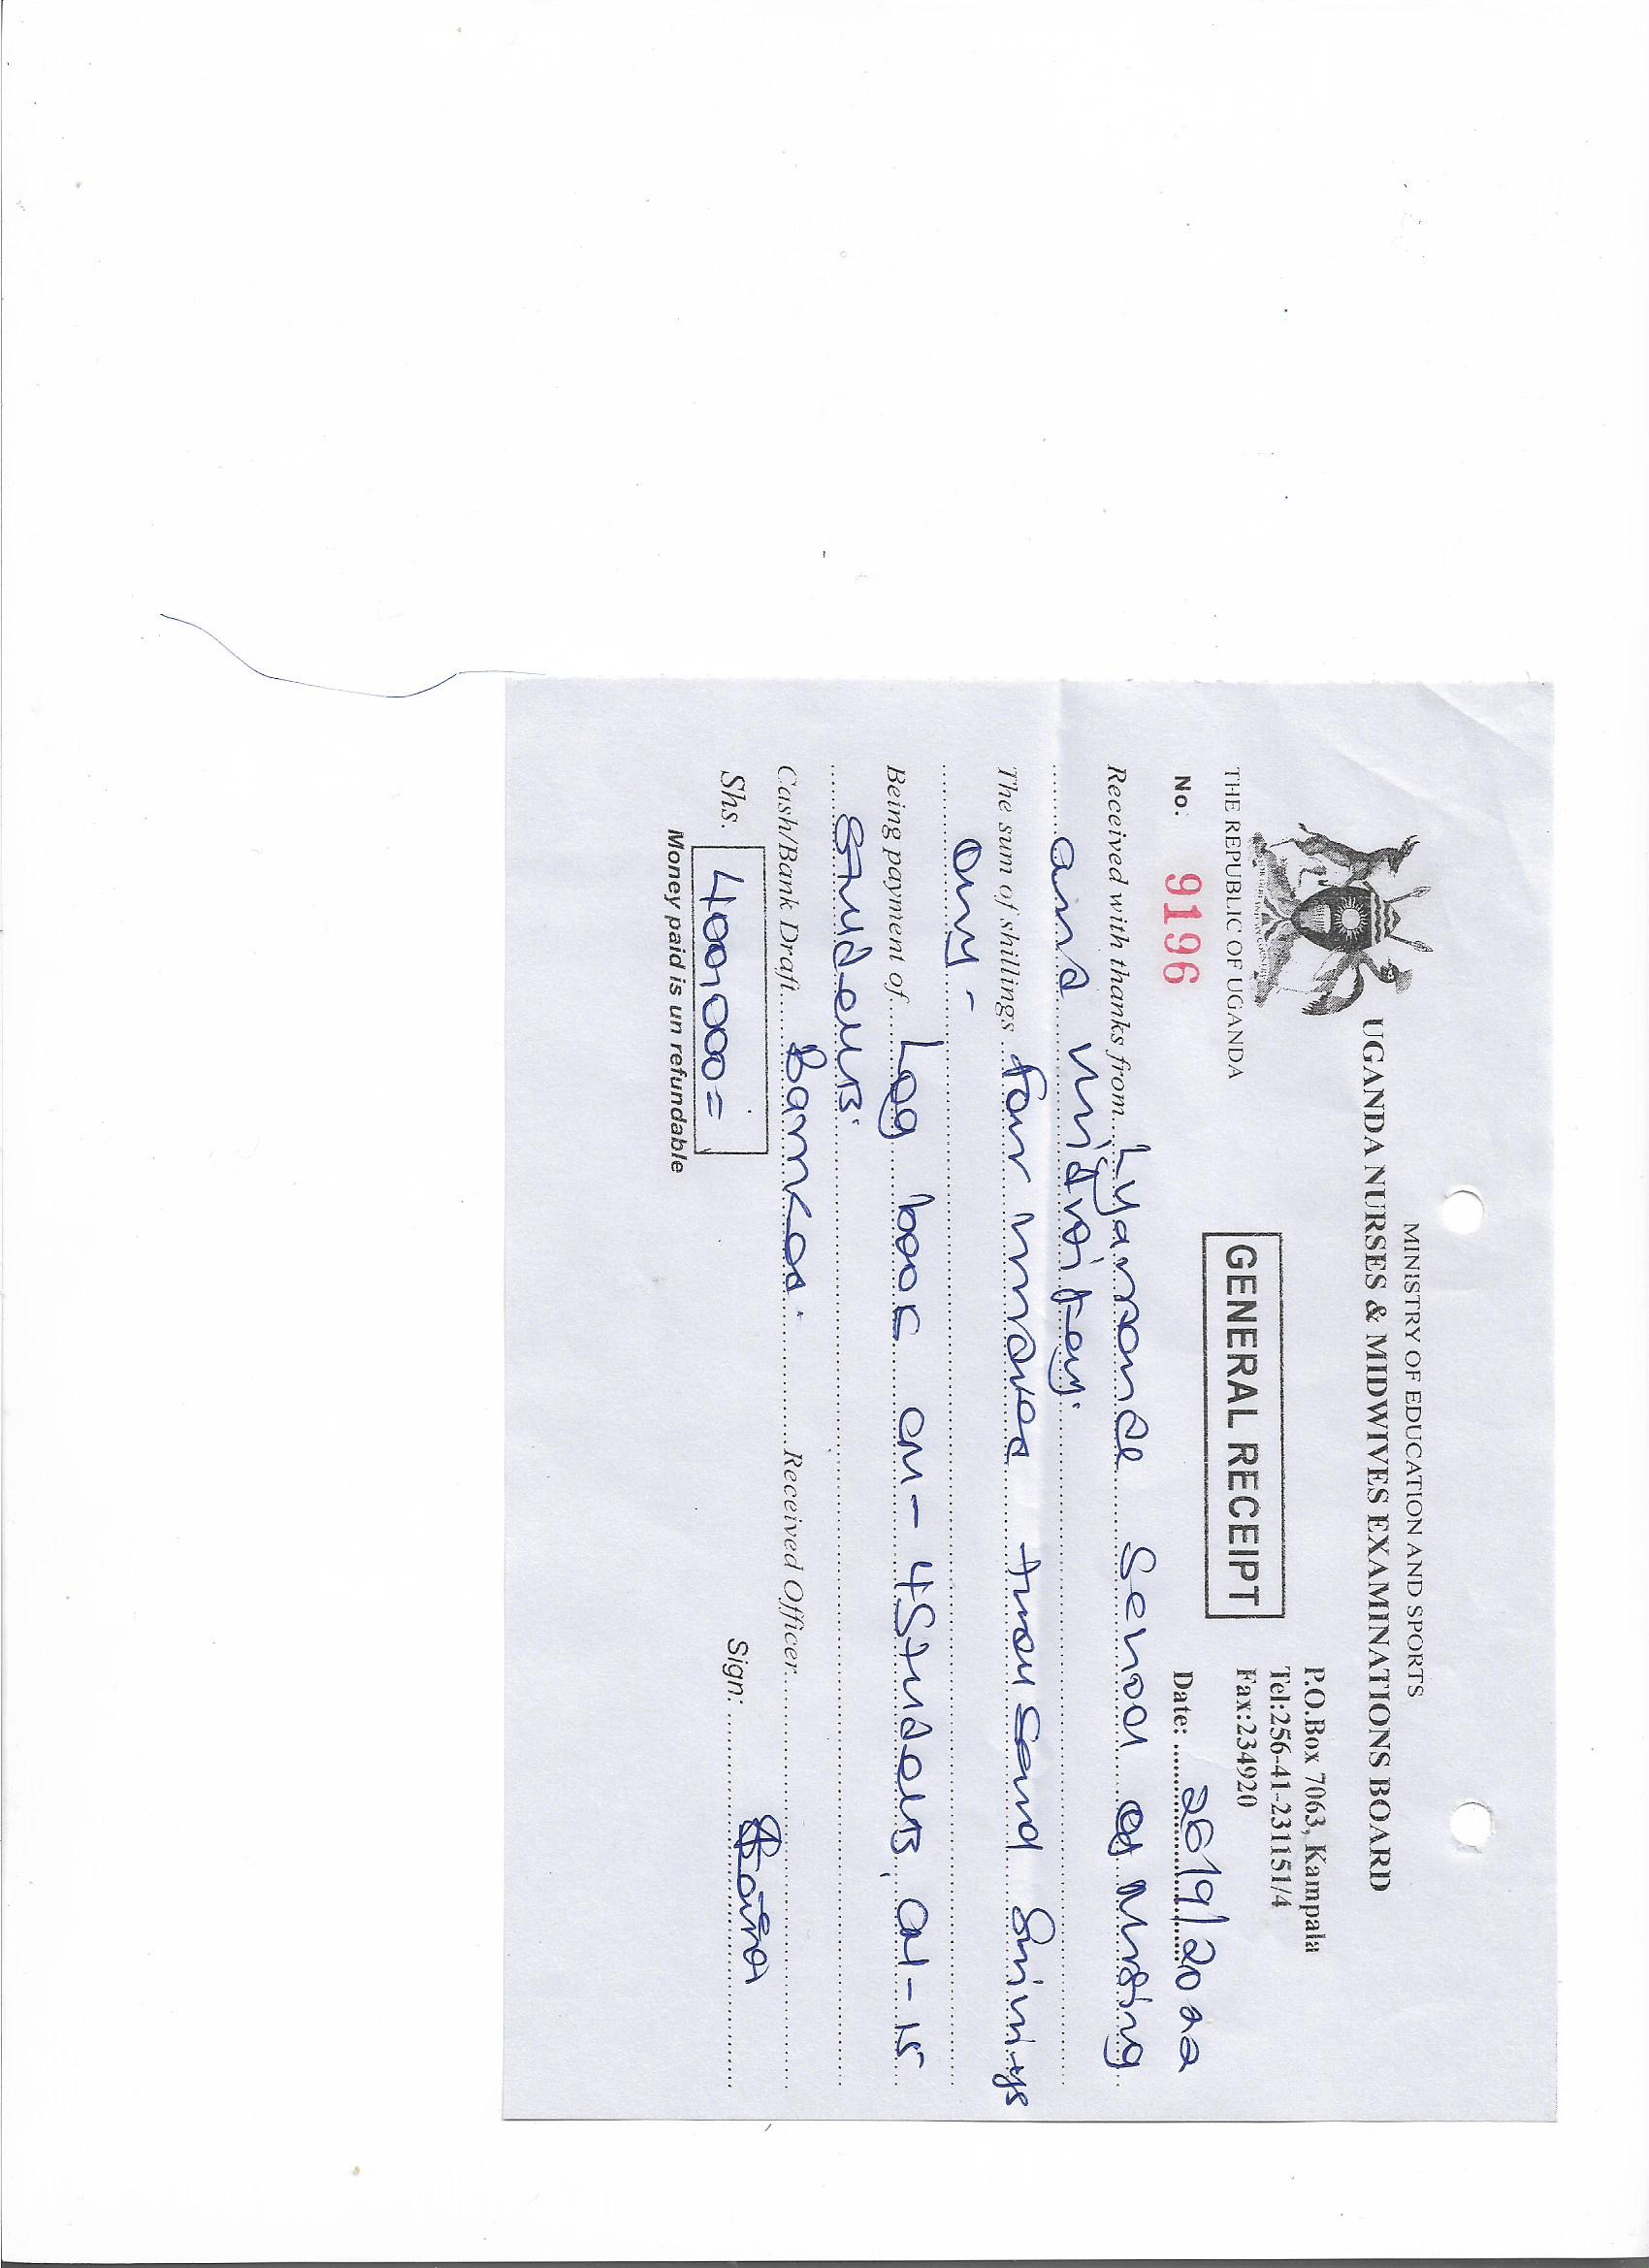 MINISTRY OF EDUCATION AND SPORTS
UGANDA NURSES & MIDWIVES EXAMINATIONS BOARD
P.O.Box 7063, Kampala
Tel:256-41-231151/4
Fax:234920
THE REPUBLIC OF UGANDA
GENERAL RECEIPT
No. 9196
Date: 26/9/2022
Received with thanks from Lyantonde School of Nursing
and midwifery.
The sum of shillings four hundred thousand shillings
only -
Being payment of Log book CM - 4 Students, CN - 15
Students.
Cash/Bank Draft Banked. Received Officer
Shs. 400,000=
Sign:
Money paid is un refundable